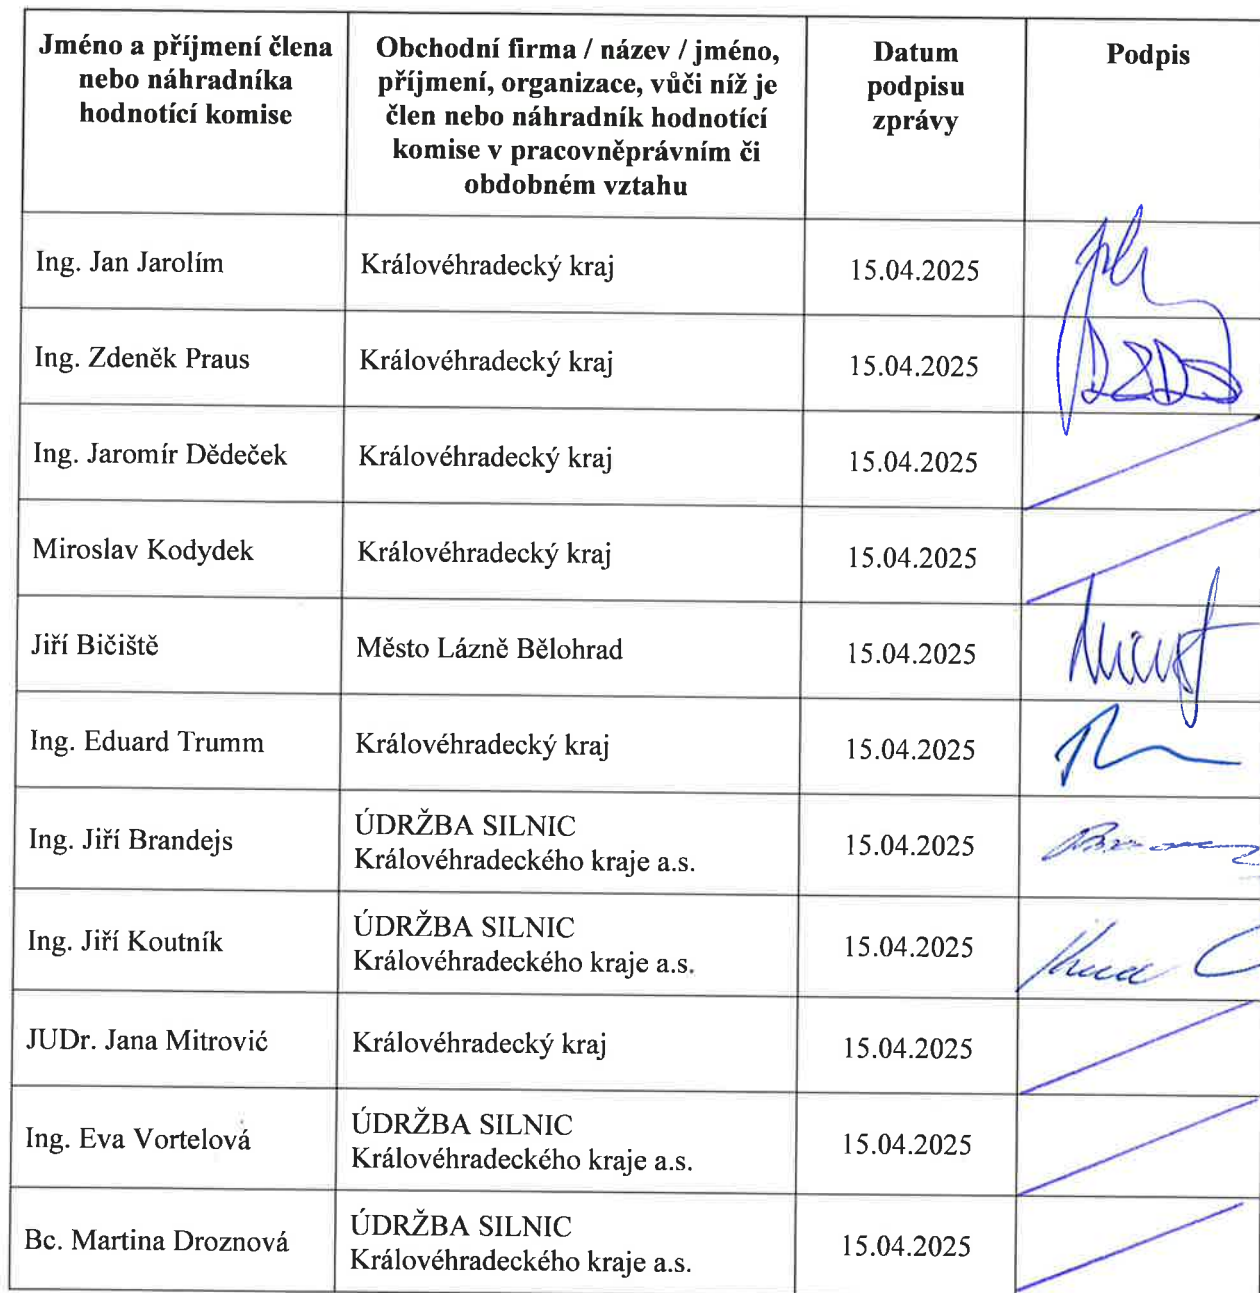 Jméno a příjmení člena
nebo náhradníka
hodnotící komise
Obchodní firma / název / jméno,
příjmení, organizace, vůči níž je
člen nebo náhradník hodnotící
komise v pracovněprávním či
obdobném vztahu
Datum
podpisu
zprávy
Podpis
Ing. Jan Jarolím
Královéhradecký kraj
15.04.2025
Ing. Zdeněk Praus
Královéhradecký kraj
15.04.2025
Ing. Jaromír Dědeček
Královéhradecký kraj
15.04.2025
Miroslav Kodydek
Královéhradecký kraj
15.04.2025
Jiří Bičiště
Město Lázně Bělohrad
15.04.2025
Ing. Eduard Trumm
Královéhradecký kraj
15.04.2025
Ing. Jiří Brandejs
ÚDRŽBA SILNIC
Královéhradeckého kraje a.s.
15.04.2025
Ing. Jiří Koutník
ÚDRŽBA SILNIC
Královéhradeckého kraje a.s.
15.04.2025
JUDr. Jana Mitrović
Královéhradecký kraj
15.04.2025
Ing. Eva Vortelová
ÚDRŽBA SILNIC
Královéhradeckého kraje a.s.
15.04.2025
Bc. Martina Droznová
ÚDRŽBA SILNIC
Královéhradeckého kraje a.s.
15.04.2025